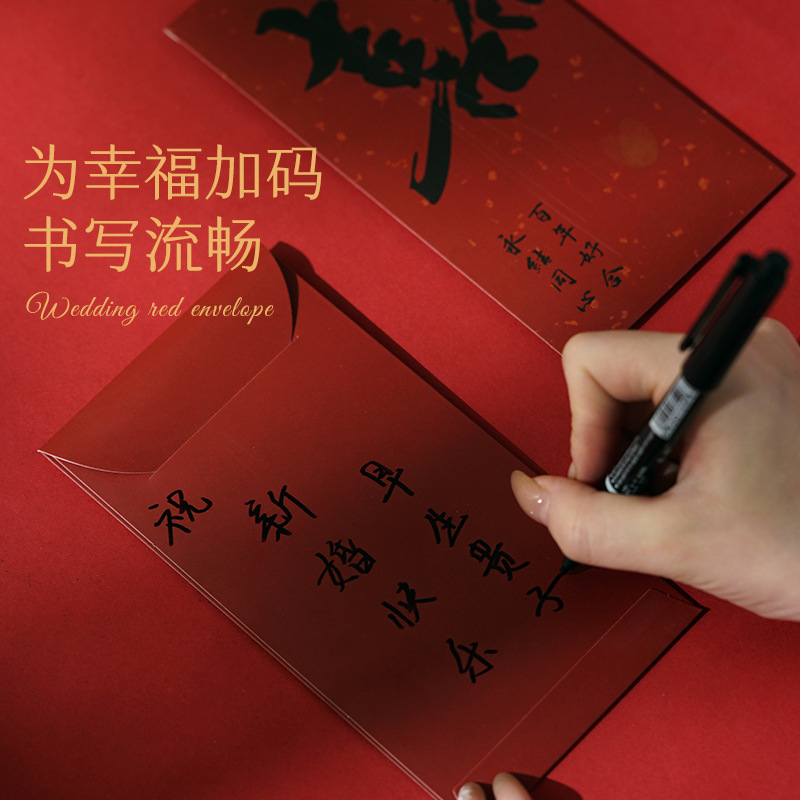 为幸福加码
书写流畅
Wedding red envelope
喜
百年好合
永結同心
祝
新婚快乐
早生贵子